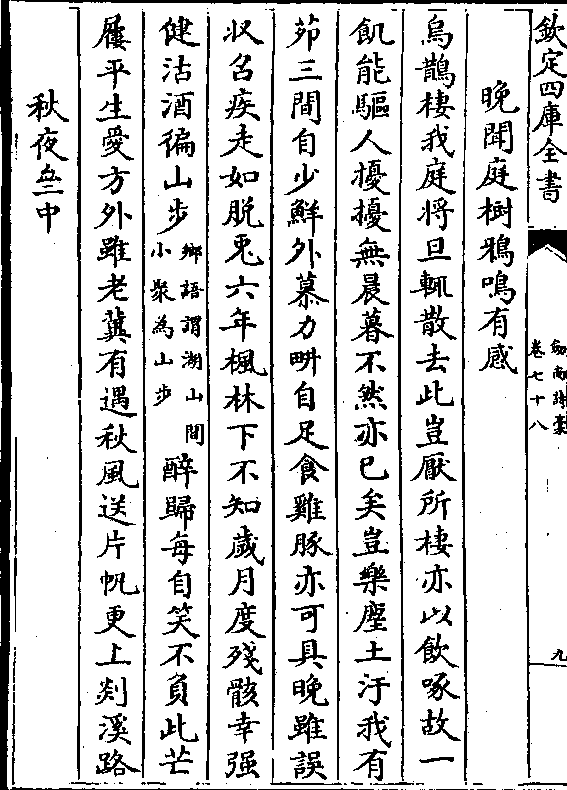 欽定四庫全書
劍南詩稾
卷七十八
九
晚聞庭樹鴉鳴有感
烏鵲棲我庭將旦輒散去此豈厭所棲亦以飲啄故一
飢能驅人擾擾無晨暮不然亦已矣豈樂塵土汙我有
茆三間自少鮮外慕力畊自足食雞豚亦可具晚雖誤
收召疾走如脫兎六年楓林下不知歲月度殘骸幸强
健沽酒徧山步鄉語謂湖山間小聚為山步醉歸每自笑不負此芒
屨平生愛方外雖老冀有遇秋風送片帆更上剡溪路
秋夜舟中